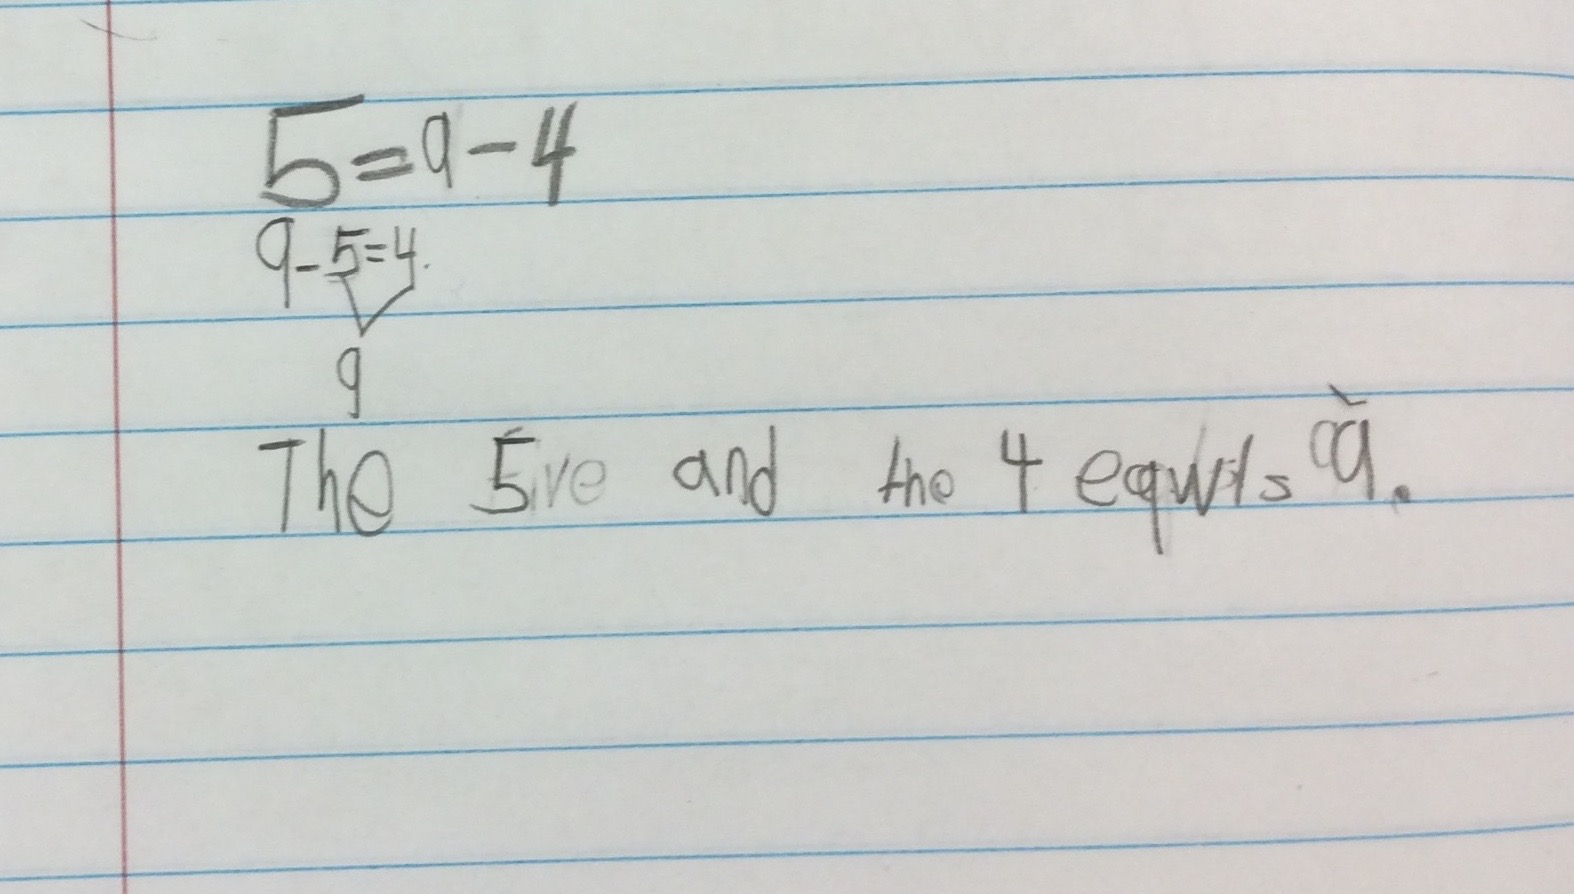 5=9-4
9-5=4.
9
The 5ive and the 4 equwls 9.